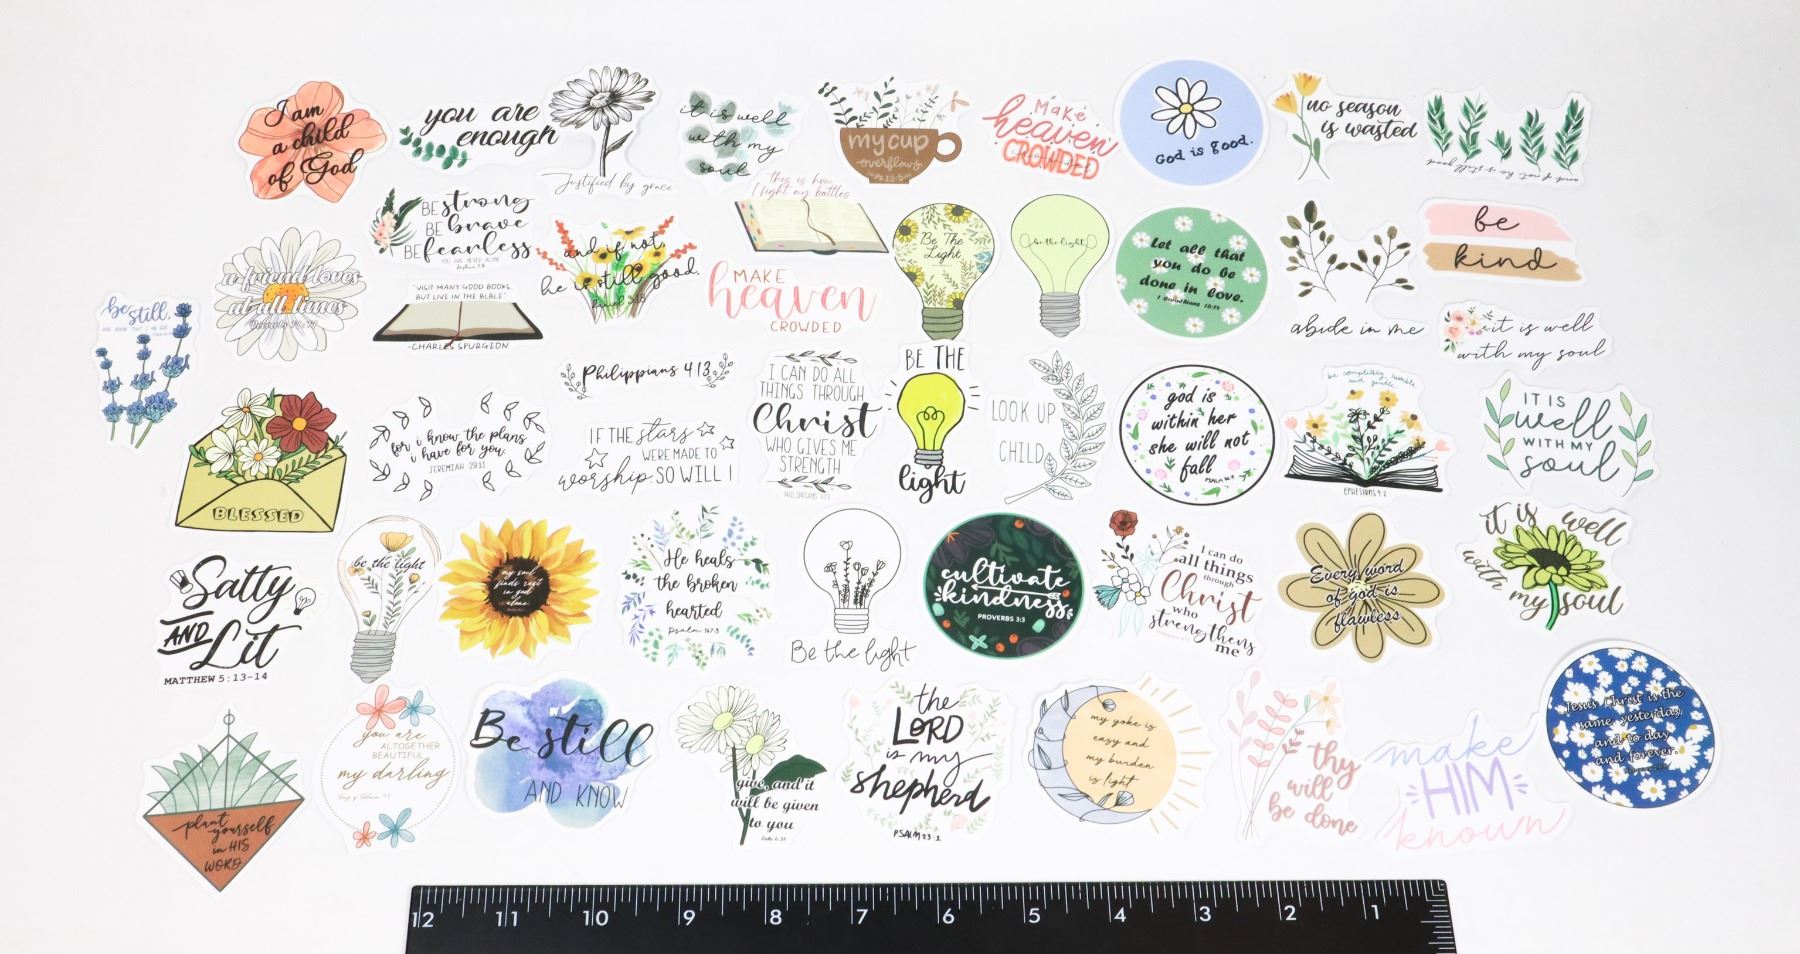 I am
a child
of God
you are
enough
Justified by grace
it is well
with my
soul
my cup
overflows
Make
heaven
CROWDED
God is good.
no season
is wasted
and if not, he is still good
be still,
AND KNOW THAT I AM GOD
a friend loves
at all times
BE strong
BE brave
BE fearless
YOU ARE NEVER ALONE
"VISIT MANY GOOD BOOKS,
BUT LIVE IN THE BIBLE"
-CHARLES SPURGEON
and if not,
he is still good.
Daniel 3:18
this is how
I fight my battles
MAKE
heaven
CROWDED
Be The
Light
be the light
Let all that
you do be
done in love.
1 Corinthians 16:14
abide in me
be
kind
it is well
with my soul
BLESSED
for i know the plans
i have for you.
JEREMIAH 29:11
Philippians 4:13
IF THE stars
WERE MADE TO
worship SO WILL I
I CAN DO ALL
THINGS THROUGH
Christ
WHO GIVES ME
STRENGTH
PHILIPPIANS 4:13
BE THE
light
LOOK UP
CHILD
god is
within her
she will not
fall
be completely humble
and gentle
EPHESIANS 4:2
IT IS
well
WITH MY
soul
Salty
AND
Lit
MATTHEW 5:13-14
be the light
my soul
finds rest
in god
alone
He heals
the broken
hearted
Psalm 147:3
Be the light
cultivate
kindness
PROVERBS 3:3
I can do
all things
through
Christ
who
strengthens
me
Every word
of god is
flawless
it is well
with my soul
plant
yourself
in HIS
WORD
you are
ALTOGETHER
BEAUTIFUL
my darling
Be still
AND KNOW
give, and it
will be given
to you
Luke 6:38
the
LORD
is my
shepherd
PSALM 23:1
my yoke is
easy and
my burden
is light
thy
will
be done
make
HIM
known
Jesus Christ is the
same yesterday
and to day
and forever.
12 11 10 9 8 7 6 5 4 3 2 1